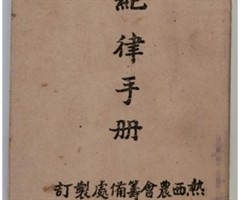 紀律手册
熱西農會籌備處製訂